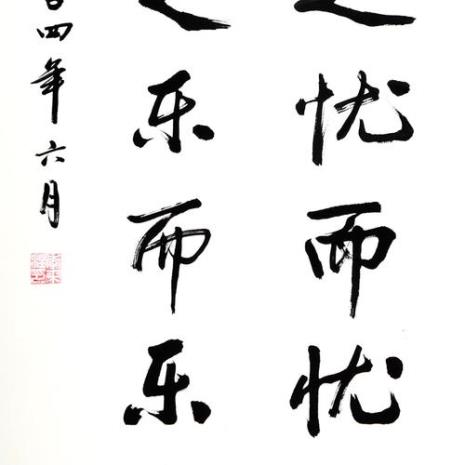 忧而忧
乐而乐
四年六月